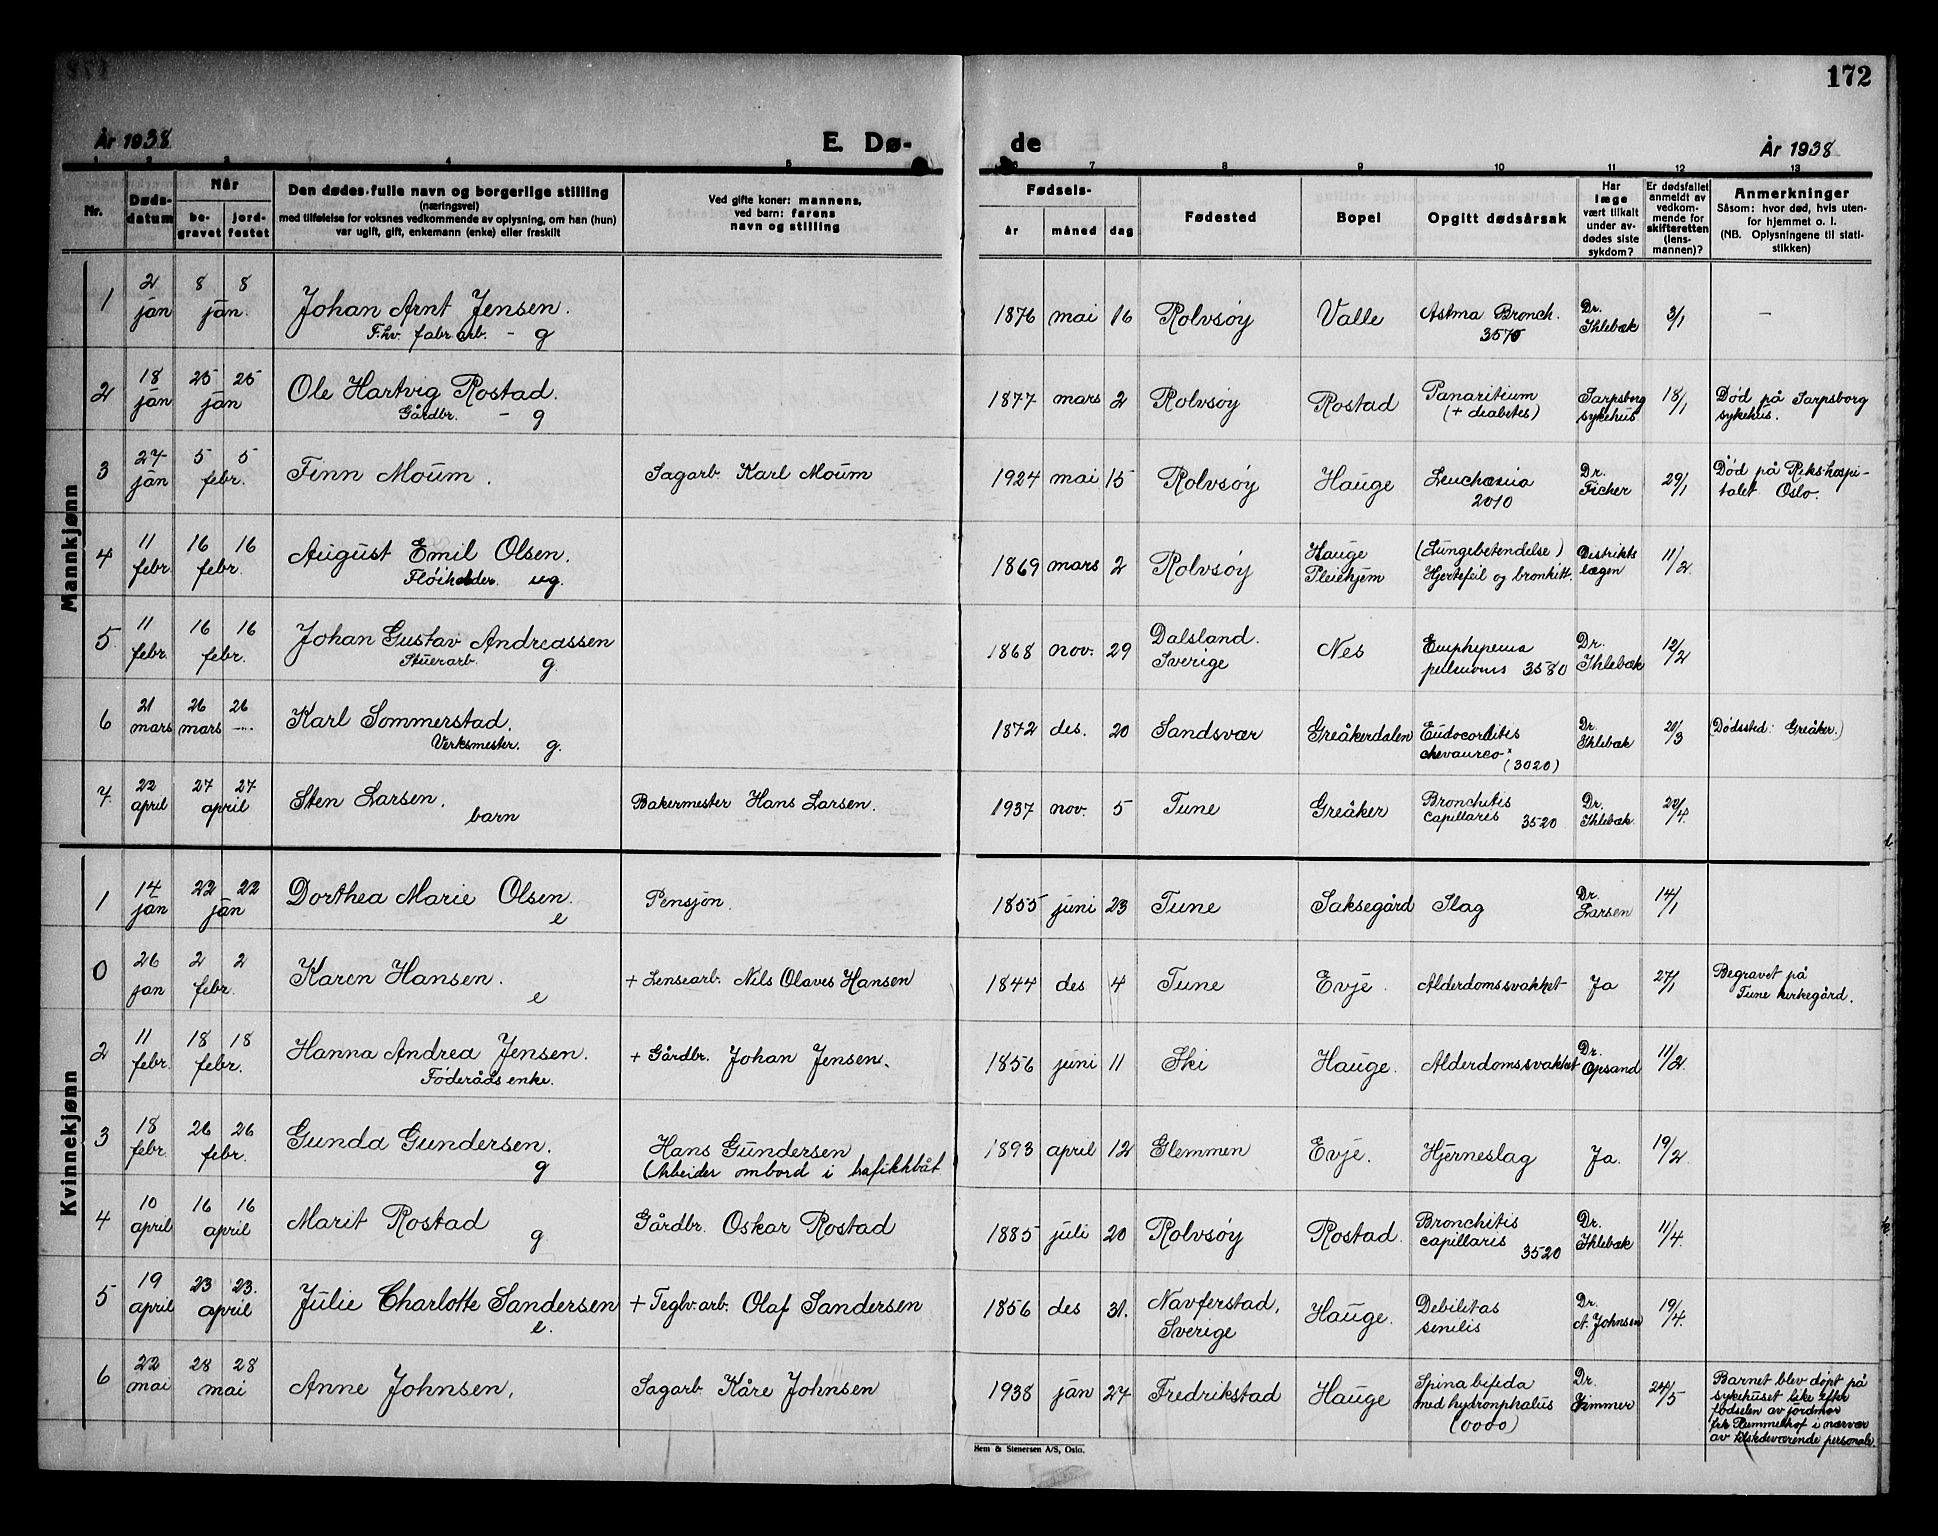 172
År 1938
E. Dø-
de
År 1938
1 2 3 4 5
6 7 8 9 10 11 12 13
Nr.
Døds-
datum
Når
be-
gravet
jord-
festet
Den dødes fulle navn og borgerlige stilling
(næringsvei)
med tilføielse for voksnes vedkommende av oplysning, om han (hun)
var ugift, gift, enkemann (enke) eller fraskilt
Ved gifte koner: mannens,
ved barn: farens
navn og stilling
Fødsels-
år måned dag
Fødested
Bopel
Opgitt dødsårsak
Har
læge
vært tilkalt
under av-
dødes siste
sykdom?
Er dødsfallet
anmeldt av
vedkom-
mende for
skifteretten
(lens-
mannen)?
Anmerkninger
Såsom: hvor død, hvis uten-
for hjemmet o. l.
(NB. Oplysningene til stati-
stikken)
Mannkjønn
1 2 jan 8 8 jan. Johan Arnt Jensen.
F.hv. fabr.arb. - g
1876 mai 16 Rolvsøy Valle Astma Bronch.
3570
Dr.
Ihlebæk
3/1 -
2 18 jan 25 25 jan Ole Hartvig Rostad.
Gårdbr. - g
1877 mars 2 Rolvsøy Rostad Panaritium
(+ diabetes)
Sarpsborg
sykehus
18/1 Død på Sarpsborg
sykehus.
3 27 jan 5 5 febr. Finn Moum.
Sagarb. Karl Moum
1924 mai 15 Rolvsøy Hauge
2010
Dr.
Ficher
29/1 Død på Rikshospi-
talet Oslo.
4 11 febr. 16 16 febr. August Emil Olsen.
ug.
1869 mars 2 Rolvsøy Hauge
Pleiehjem
(Lungebetendelse)
Hjertefeil og bronkitt.
Distrikts
lægen
11/2
5 11 febr. 16 16 febr. Johan Gustav Andreassen
Stuerarb. g.
1868 nov. 29 Dalsland.
Sverige
Nes
3580
Dr.
Ihlebæk
12/2
6 21 mars 26 mars 26 -- Karl Sommerstad.
Verksmester. g.
1872 des. 20 Sandsvær Greåkerdalen
(3020)
Dr.
Ihlebæk
21/3 (Dødssted: Greåker.)
7. 22 april 27 27 april Sten Larsen.
barn
Bakermester Hans Larsen.
1937 nov. 5 Tune Greåker Bronchitis
capillaris 3520
Dr.
Ihlebæk
22/4.
Kvinnekjønn
1 14 jan 22 22 jan Dorthea Marie Olsen.
e
Pensjon.
1855 juni 23 Tune Saksegård Slag
Dr.
Larsen
14/1
0 26 jan 2 2 febr. Karen Hansen.
e
+ Lensearb. Nils Olaves Hansen
1844 des 4 Tune Evje. Alderdomssvakhet Ja 27/1
Begravet på
Tune kirkegård.
2 11 febr. 18 18 febr. Hanna Andrea Jensen.
Føderåds enke.
+ Gårdbr. Johan Jensen.
1856 juni 11 Ski Hauge. Alderdomssvakhet
Dr.
Opsand
11/2
3 18 febr. 26 26 febr. Gunda Gundersen.
g
Hans Gundersen
(Arbeider ombord i trafikkbåt
1893 april 12 Glemmen Evje. Hjerneslag Ja. 19/2
4 10 april 16 16 april Marit Rostad
g.
Gårdbr. Oskar Rostad
1885 juli 20 Rolvsøy Rostad. Bronchitis
capillaris 3520
Dr.
Ihlebæk
11/4.
5 19 april 23 23. april Julie Charlotte Sandersen
e.
+ Teglv.arb. Olaf Sandersen
1856 des 31. Navferstad,
Sverige
Hauge. Debilitas
senilis
Dr.
A. Johnsen
19/4.
6 22 mai 28 28 mai Anne Johnsen.
Sagarb. Kåre Johnsen
1938 jan 27 Fredrikstad Hauge Spina bifida
med hydronphalus
(0000)
Dr.
Zimmer
24/5
Barnet blev døpt på
sykehuset like efter
fødselen av jordmor
frk Plummelhof i nærvær
av tilstedeværende personale.
Hem & Stenersen A/S, Oslo.